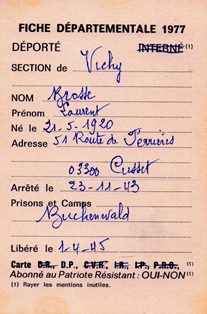 FICHE DÉPARTEMENTALE 1977
DÉPORTÉ INTERNÉ (1)
SECTION de Vichy
NOM Brosse
Prénom Laurent
Né le 21-5-1920
Adresse 51 Route de Ferrières
03300 Cusset
Arrêté le 23-11-43
Prisons et Camps
Buchenwald
Libéré le 1-4-45
Carte D.R., D.P., C.V.R., I.R., I.P., P.R.O., (1)
Abonné au Patriote Résistant : OUI-NON (1)
(1) Rayer les mentions inutiles.